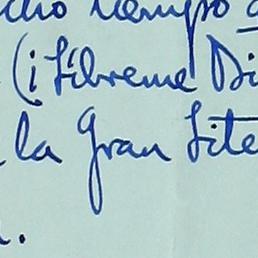 cho tiempo
(¡ Líbreme Di
la Gran Lite